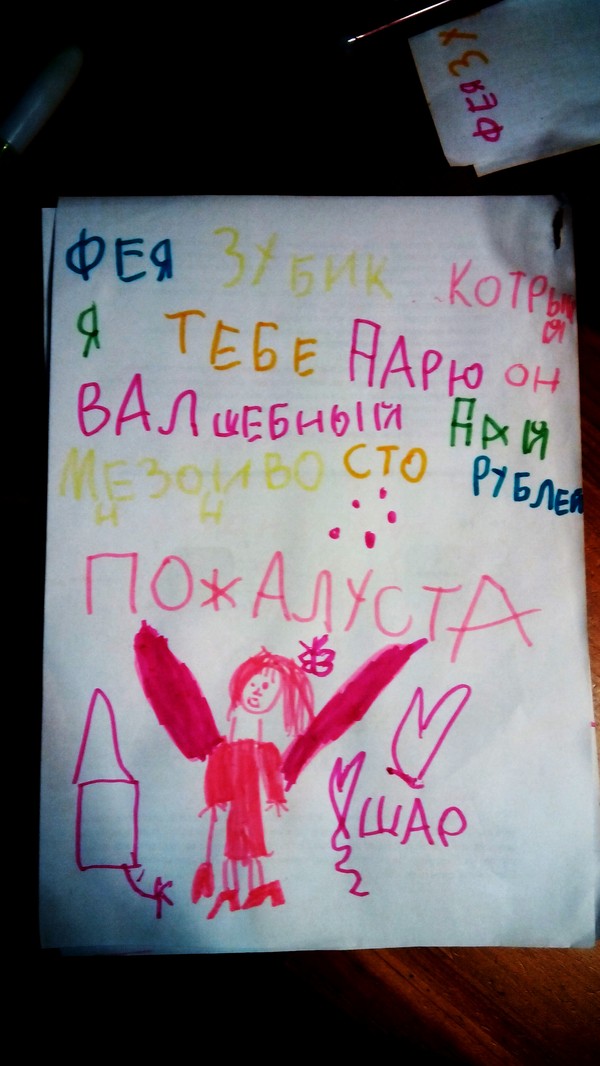 ФЕЯ ЗУ
ФЕЯ ЗУБИК КОТРЫЙ
Я ТЕБЕ ДАРЮ ОН
ВАЛШЕБНЫЙ ДАЙ
МНЕ ЗОНИВО СТО РУБЛЕЙ
ПОЖАЛУСТА
ШАР